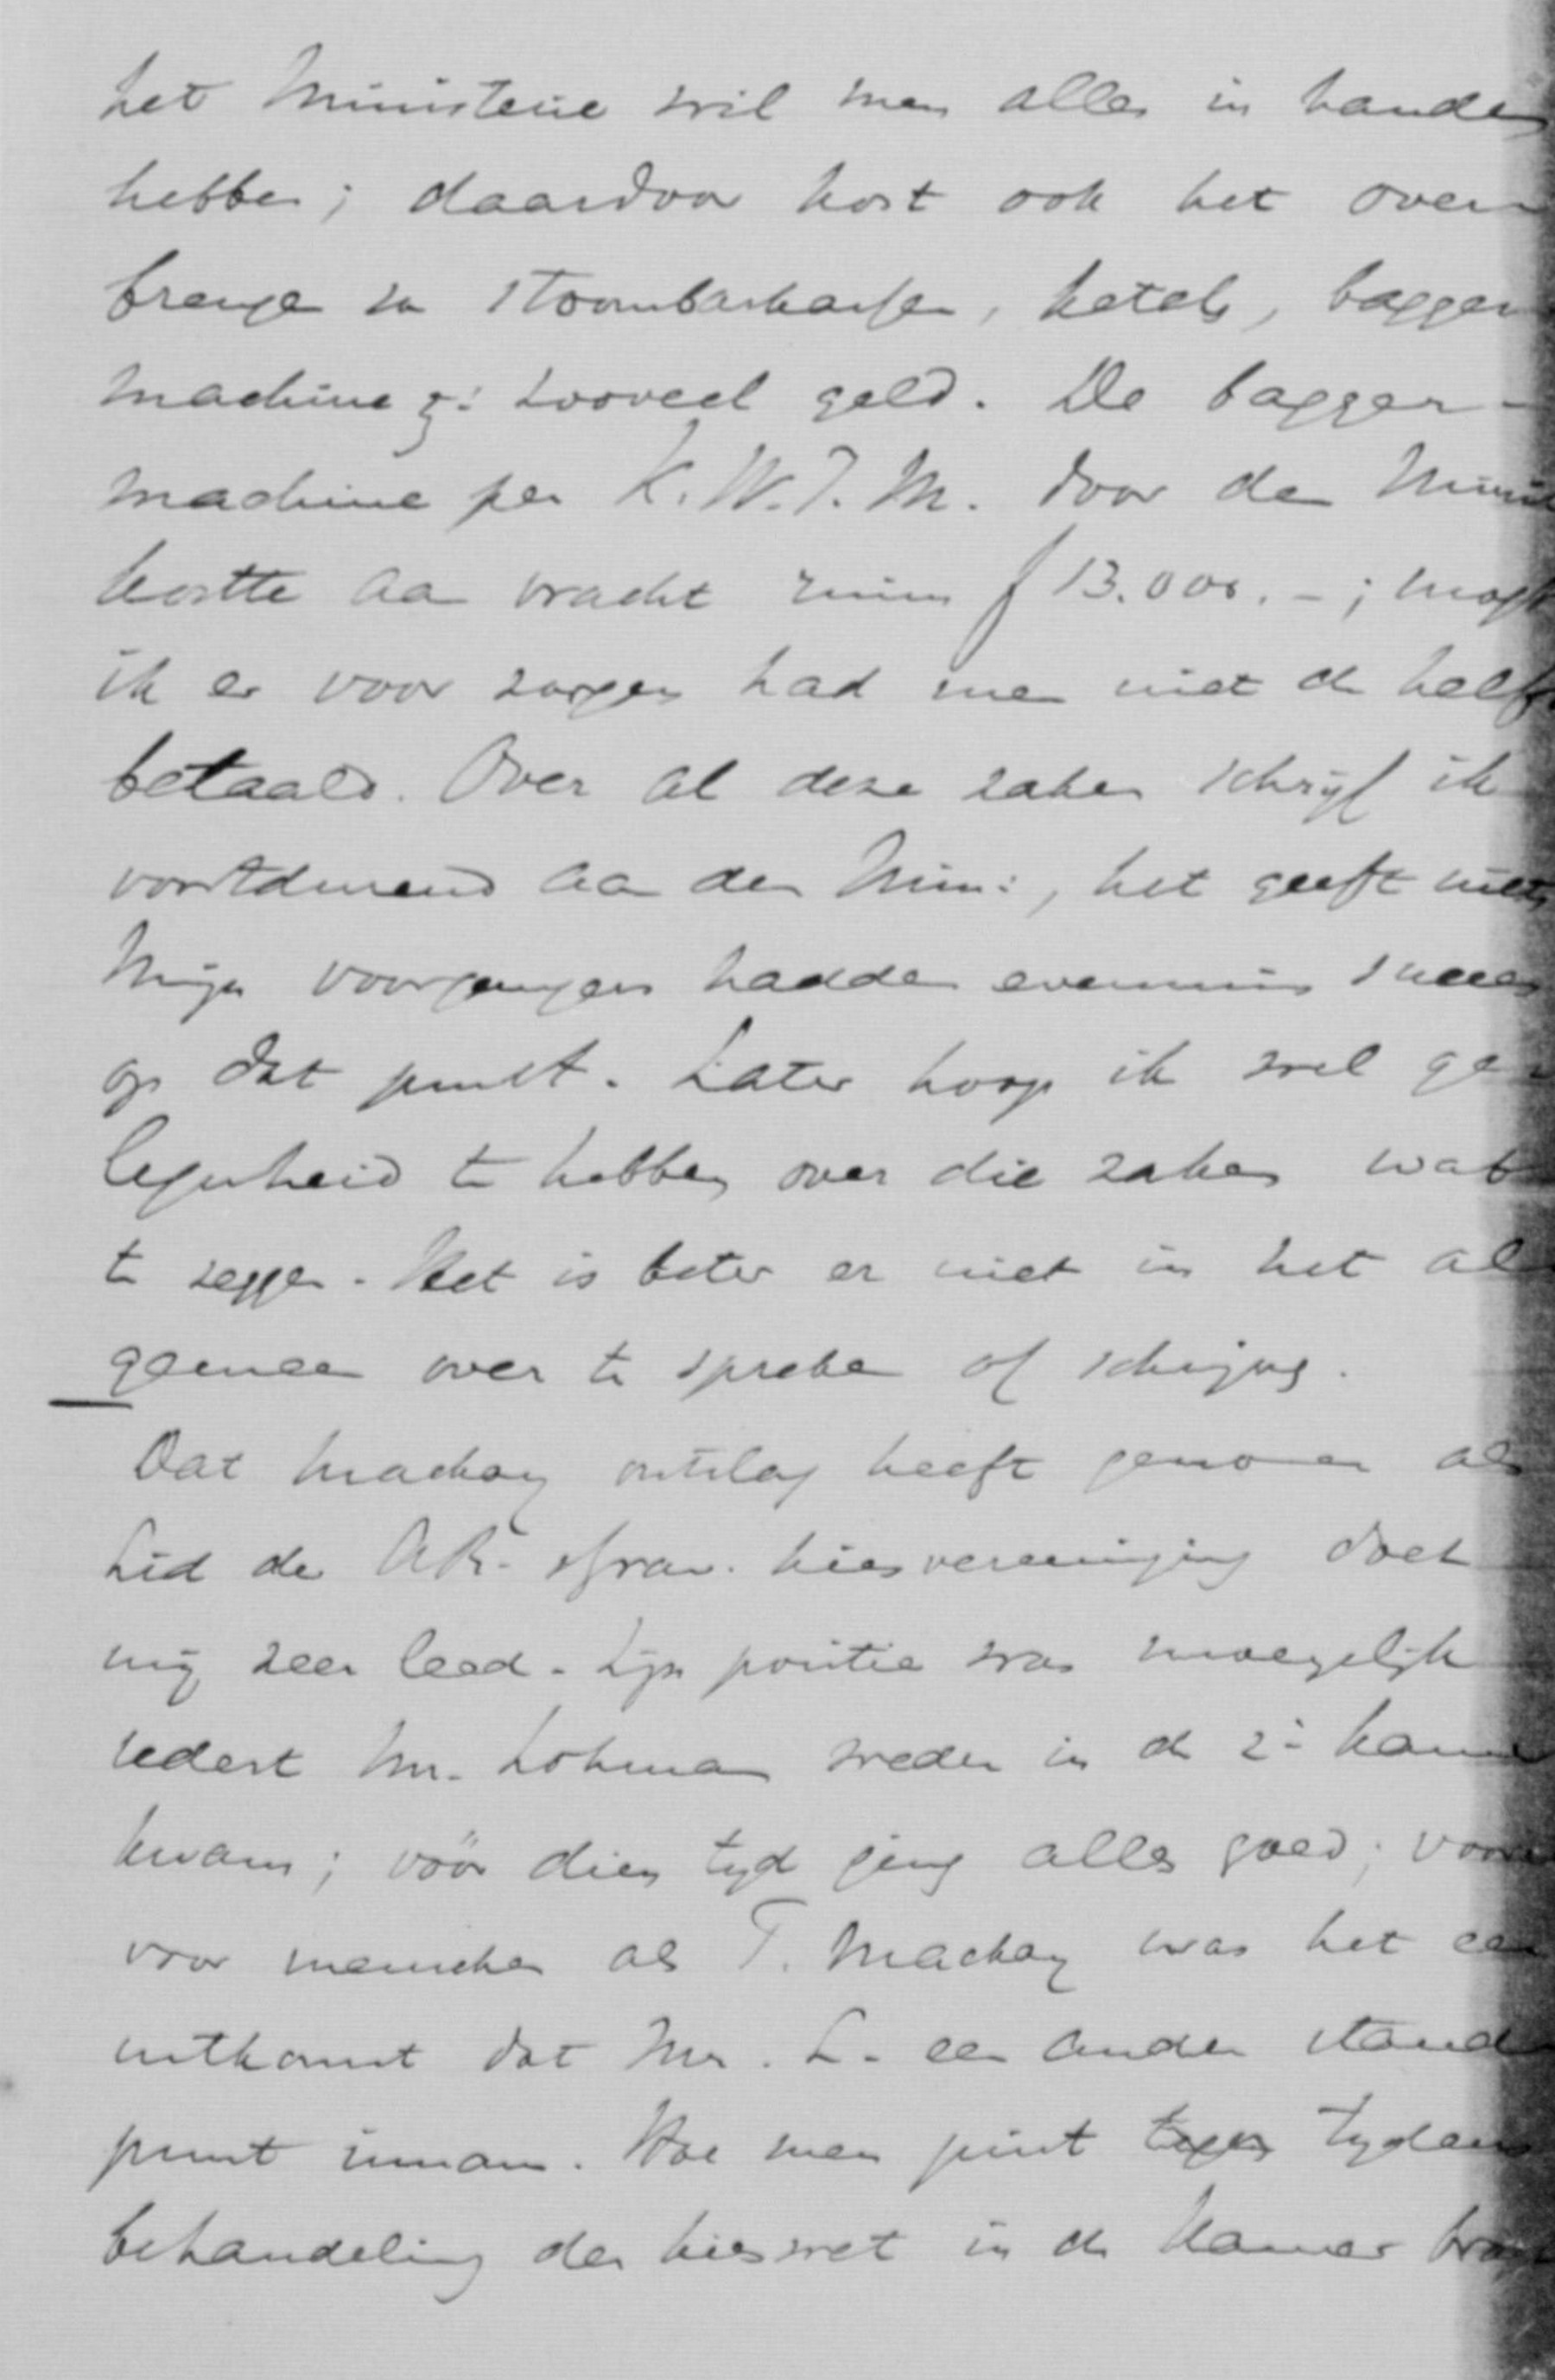 het Ministerie wil men alles in handen
hebben; daardoor kost ook het over-
brengen van stoombarkassen, ketels, bagger
machine zooveel geld. De bagger-
machine per K.W.I.M. door den Minis
kostte aan vracht ruim f 13.000.-; mogt
ik er voor zorgen had men niet de helft
betaald. Over al deze zaken schrijf ik
voortdurend aan den Min:, het geeft niets
Mijn voorgangers hadden evenmin succes
op dat punt. Later hoop ik wel ge-
legenheid te hebben over die zaken wat
te zeggen. Het is beter er niet in het al
gemeen over te spreken of schrijven.
Dat Mackay ontslag heeft genomen als
Lid der AR. kiesvereeniging doet
mij zeer leed. Zijn positie was moeyelijk
sedert Mr. Lohman weder in de 2e kamer
kwam; vóór dien tyd ging alles goed; voor
voor menschen als T. Mackay was het een
uitkomst dat Mr. L. een ander stand
punt innam. Hoe men juist tegen tydens
behandeling der kieswet in de Kamer